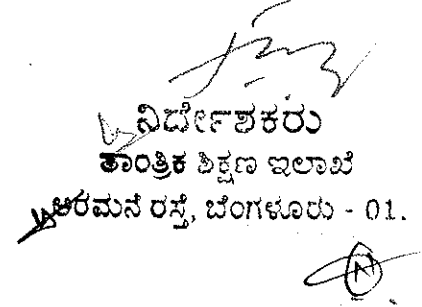 ನಿರ್ದೇಶಕರು
ತಾಂತ್ರಿಕ ಶಿಕ್ಷಣ ಇಲಾಖೆ
ಅರಮನೆ ರಸ್ತೆ, ಬೆಂಗಳೂರು - 01.